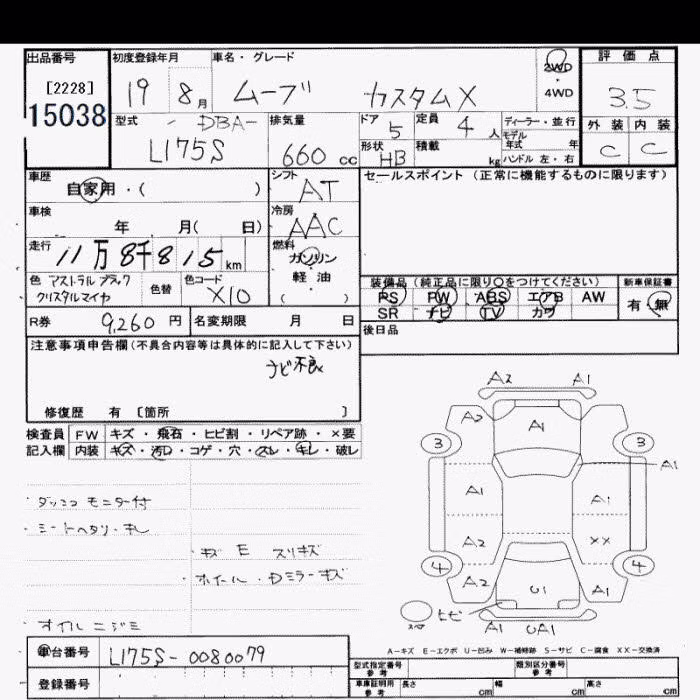 出品番号
[2228]
15038
初度登録年月
19 8月
車名・グレード
ムーブ カスタムX
2WD
・
4WD
評価点
3.5
型式
DBA-
L175S
排気量
660 cc
ドア
5
定員
4 人
形状
HB
積載
kg
ディーラー・並行
モデル
年式 年
ハンドル 左・右
外装 内装
C C
車歴
自家用・( )
シフト
AT
セールスポイント (正常に機能するものに限ります)
車検
年 月( 日)
冷房
AAC
走行
11万8千815km
燃料
ガソリン
軽・油
( )
色 アストラルブラック
クリスタルマイカ
色替
色コード
X10
装備品 (純正品に限り○をつけてください)
新車保証書
PS PW ABS エアB AW
SR ナビ TV カワ
有・無
R券
9,260 円
名変期限 月 日
後日品
注意事項申告欄(不具合内容等は具体的に記入して下さい)
ナビ不良
修復歴 有 [箇所 ]
検査員
記入欄
FW キズ・飛石・ヒビ割・リペア跡・×要
内装 キズ・汚れ・コゲ・穴・スレ・キレ・破レ
・ダッシュ モニター付
・シートヘタリ・キレ
・キズ E スリキズ
・ホイール・Dミラーキズ
オイルニジミ
A2 A1
A2 A1
3 3
A1
A1 A1
A2 XX
4 4
A2 U1 A1
ヒビ
A1 UA1
A-キズ E-エクボ U-凹み W-補修跡 S-サビ C-腐食 XX-交換済
車台番号
L175S-0080079
登録番号
型式指定番号
参考
類別区分番号
参考
車庫証明用
参考
長さ cm
幅 cm
高さ cm